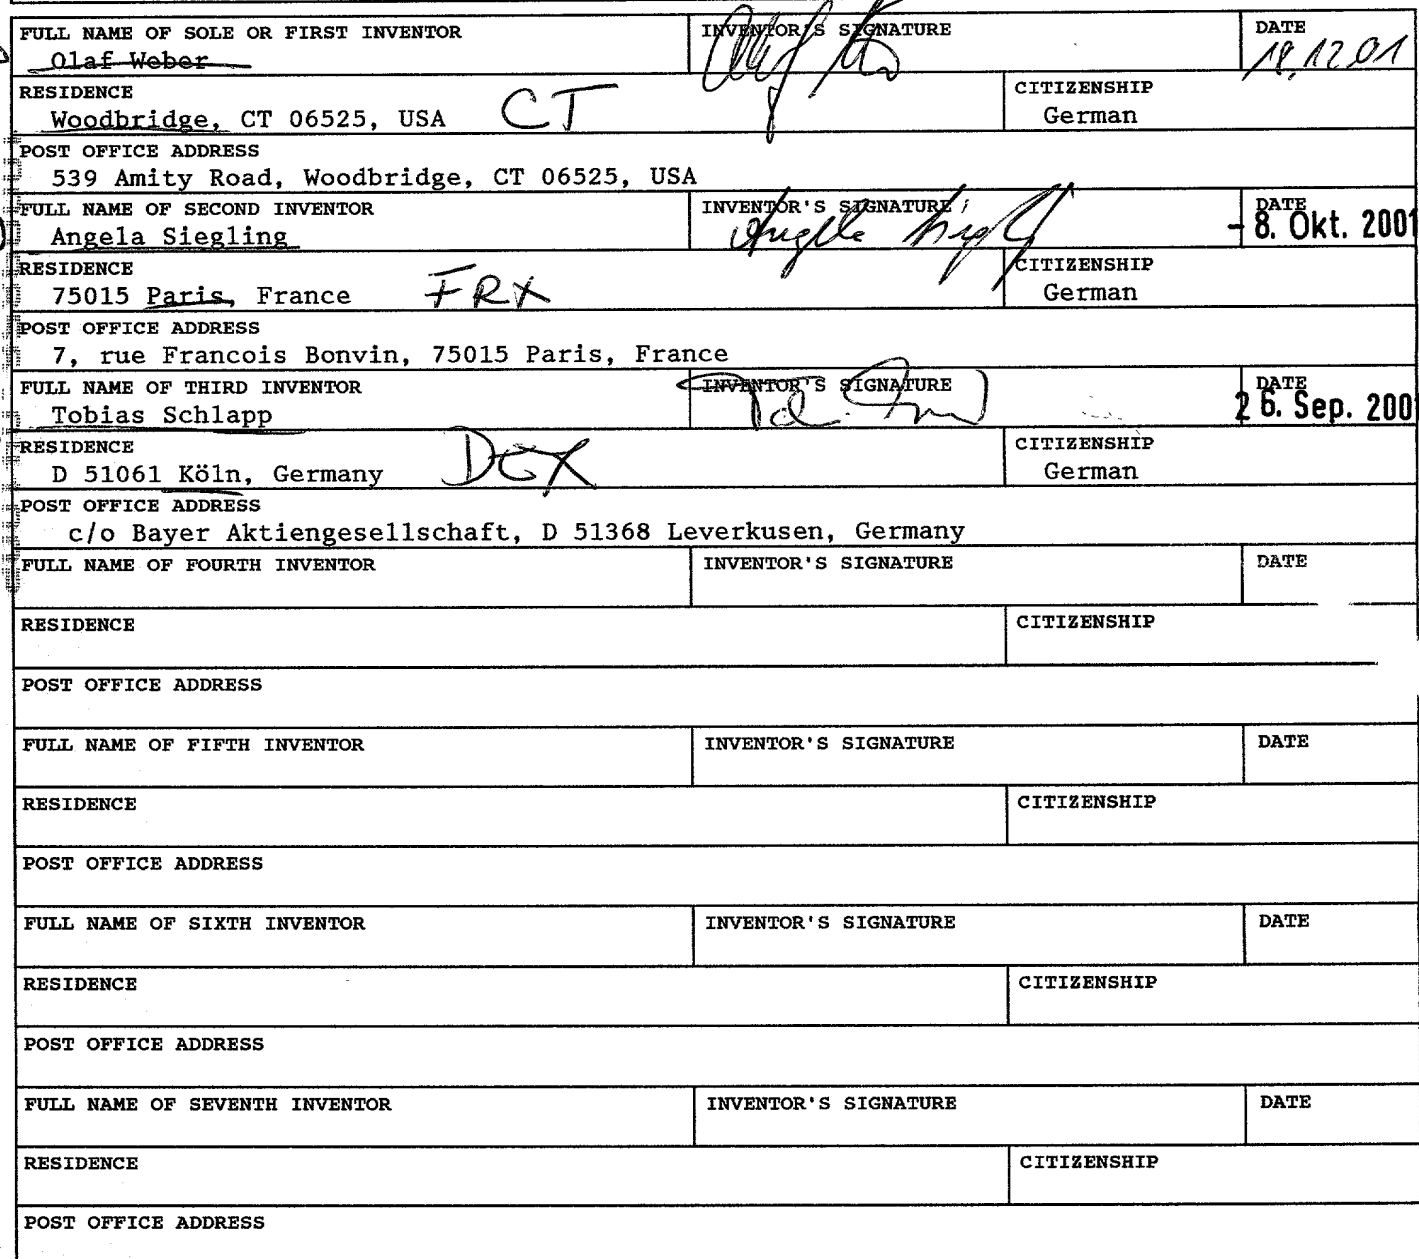 FULL NAME OF SOLE OR FIRST INVENTOR INVENTOR'S SIGNATURE DATE
Olaf Weber 18.12.01
RESIDENCE CITIZENSHIP
Woodbridge, CT 06525, USA CT German
POST OFFICE ADDRESS
539 Amity Road, Woodbridge, CT 06525, USA
FULL NAME OF SECOND INVENTOR INVENTOR'S SIGNATURE DATE
Angela Siegling Angela Siegling -8. Okt. 2001
RESIDENCE CITIZENSHIP
75015 Paris, France FRX German
POST OFFICE ADDRESS
7, rue Francois Bonvin, 75015 Paris, France
FULL NAME OF THIRD INVENTOR INVENTOR'S SIGNATURE DATE
Tobias Schlapp 26. Sep. 2001
RESIDENCE CITIZENSHIP
D 51061 Köln, Germany DEX German
POST OFFICE ADDRESS
c/o Bayer Aktiengesellschaft, D 51368 Leverkusen, Germany
FULL NAME OF FOURTH INVENTOR INVENTOR'S SIGNATURE DATE
RESIDENCE CITIZENSHIP
POST OFFICE ADDRESS
FULL NAME OF FIFTH INVENTOR INVENTOR'S SIGNATURE DATE
RESIDENCE CITIZENSHIP
POST OFFICE ADDRESS
FULL NAME OF SIXTH INVENTOR INVENTOR'S SIGNATURE DATE
RESIDENCE CITIZENSHIP
POST OFFICE ADDRESS
FULL NAME OF SEVENTH INVENTOR INVENTOR'S SIGNATURE DATE
RESIDENCE CITIZENSHIP
POST OFFICE ADDRESS